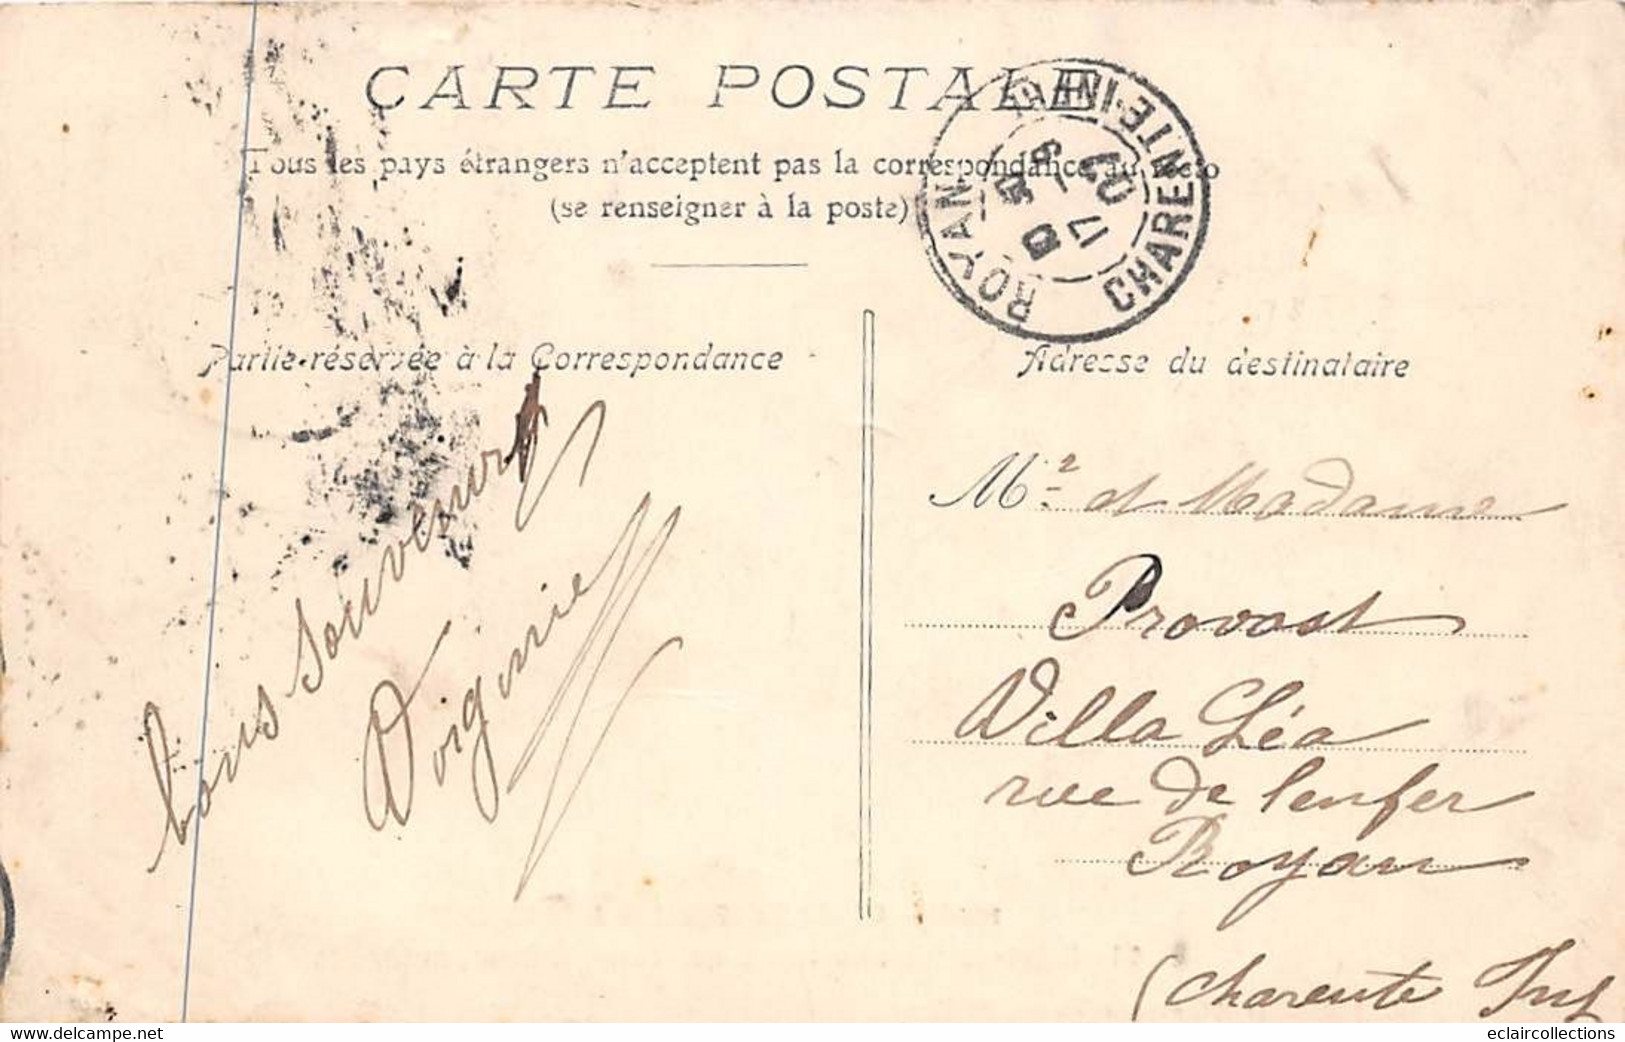 CARTE POSTALE
Tous les pays étrangers n'acceptent pas la correspondance au recto
(se renseigner à la poste)
ROYAN
CHARENTE INFRE
17
Partie réservée à la Correspondance
Adresse du destinataire
bons souvenirs
Mr et Madame
Provost
Villa Léa
rue de l'enfer
Royan
(Charente Inf
eclaircollections